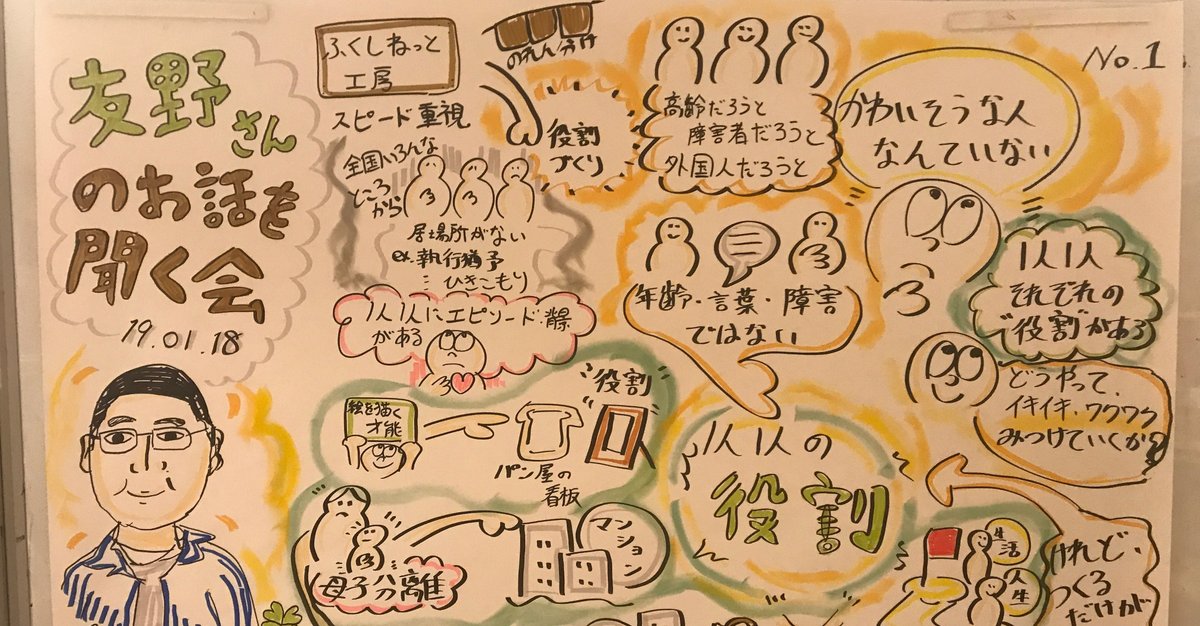 友野さん
のお話を
聞く会
19.01.18
ふくしねっと
工房
のれん分け
スピード重視
全国いろんな
ところ
から
居場所がない
ex.執行猶予
ひきこもり
役割
づくり
1人1人にエピソード・背景
がある
高齢だろうと
障害者だろうと
外国人だろうと
No.1
かわいそうな人
なんていない
年齢・言葉・障害
ではない
1人1人
それぞれの
"役割"がある
どうやって、
イキイキ、ワクワク
みつけていくか?
絵を描く
才能
パン屋の
看板
役割
1人1人の
役割
母子分離
マンション
生活
人生
けれど、
つくる
だけが